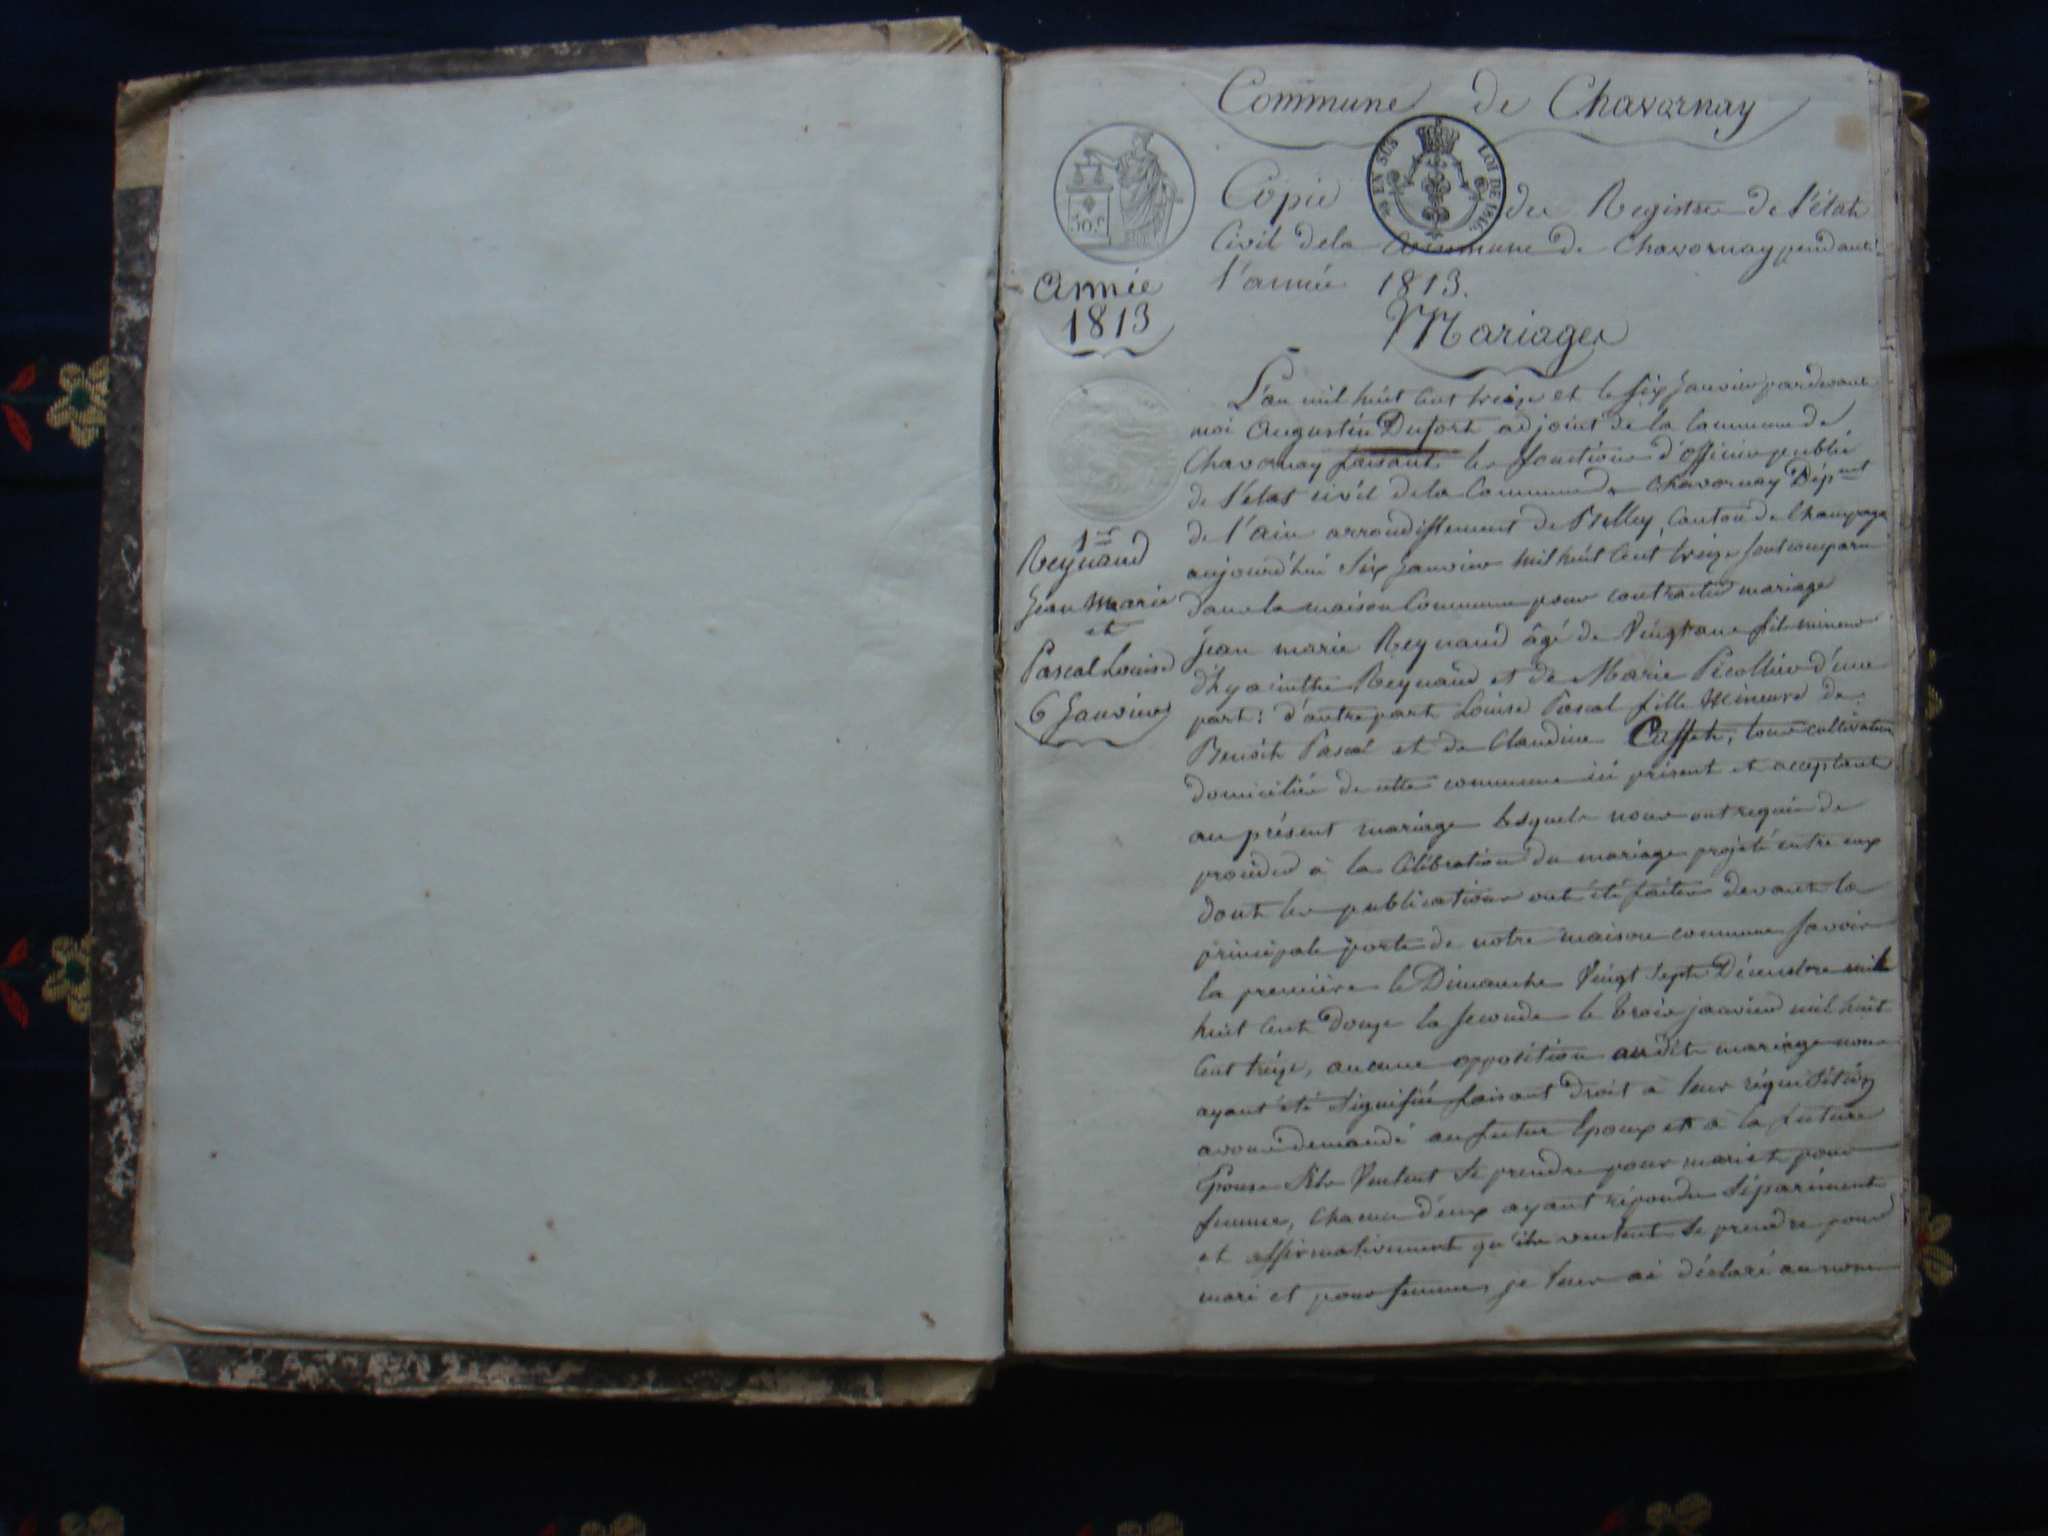 Commune de Chavornay
50.c
EN SUS
LOI DE 1816.
Copie du Registre de l'état
Civil dela Commune de Chavornay pendant
l'année 1813.
Année
1813
Mariages
L'an mil huit cent treize et le six Janvier pardevant
moi Augustin Dufort adjoint de la Commune de
Chavornay faisant les fonctions d'officier public
de l'état civil dela Commune de Chavornay Dépnt
de l'ain arrondissement de Belley, Canton de Champagne
aujourd'hui six Janvier mil huit cent treize sont comparu
dans la maison Commune pour contracter mariage
1er
Reynaud
Jean Marie
et
Pascal Louise
6 Janvier
jean marie Reynaud âgé de Vingt ans fils mineur
d'hyacinthe Reynaud et de Marie Picollier d'une
part: d'autre part Louise Pascal fille Mineure de
Benoît Pascal et de Claudine Cafset, tous cultivateurs
domiciliés de cette commune ici présent et acceptant
au présent mariage lesquels nous ont requis de
procéder à la Célébration du mariage projeté entre eux
dont les publications ont été faites devant la
principale porte de notre maison commune Savoir
la première le Dimanche Vingt Sept Décembre mil
huit Cent Douze la Seconde le trois janvier mil huit
Cent treize, aucune opposition audit mariage nous
ayant été Signifié faisant Droit à leur réquisition
avons demandé au futur Epoux et à la future
Epouse S'ils Veulent Se prendre pour mari et pour
femme, chacun d'eux ayant répondu Séparément
et affirmativement qu'ils veulent Se prendre pour
mari et pour femme, je leur ai déclaré au nom